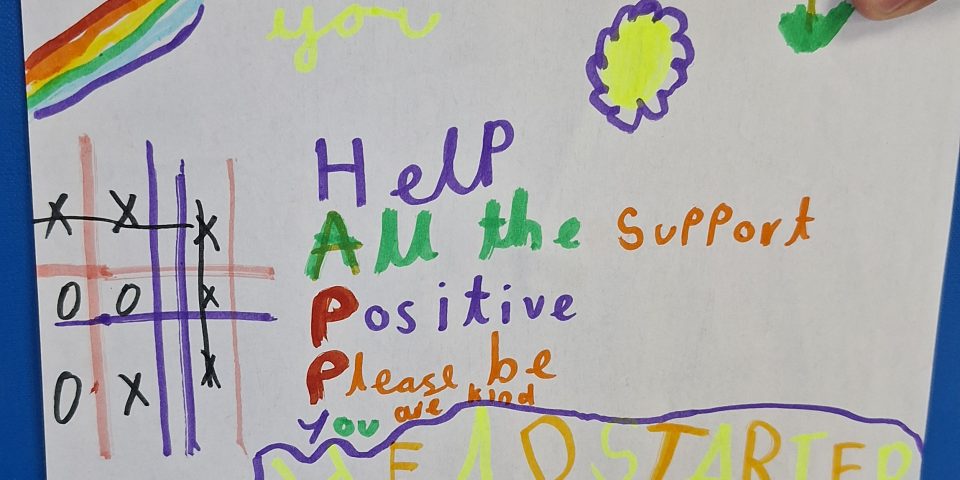 you
Help
All the support
Positive
Please be
you are kind
HEADSTARTER